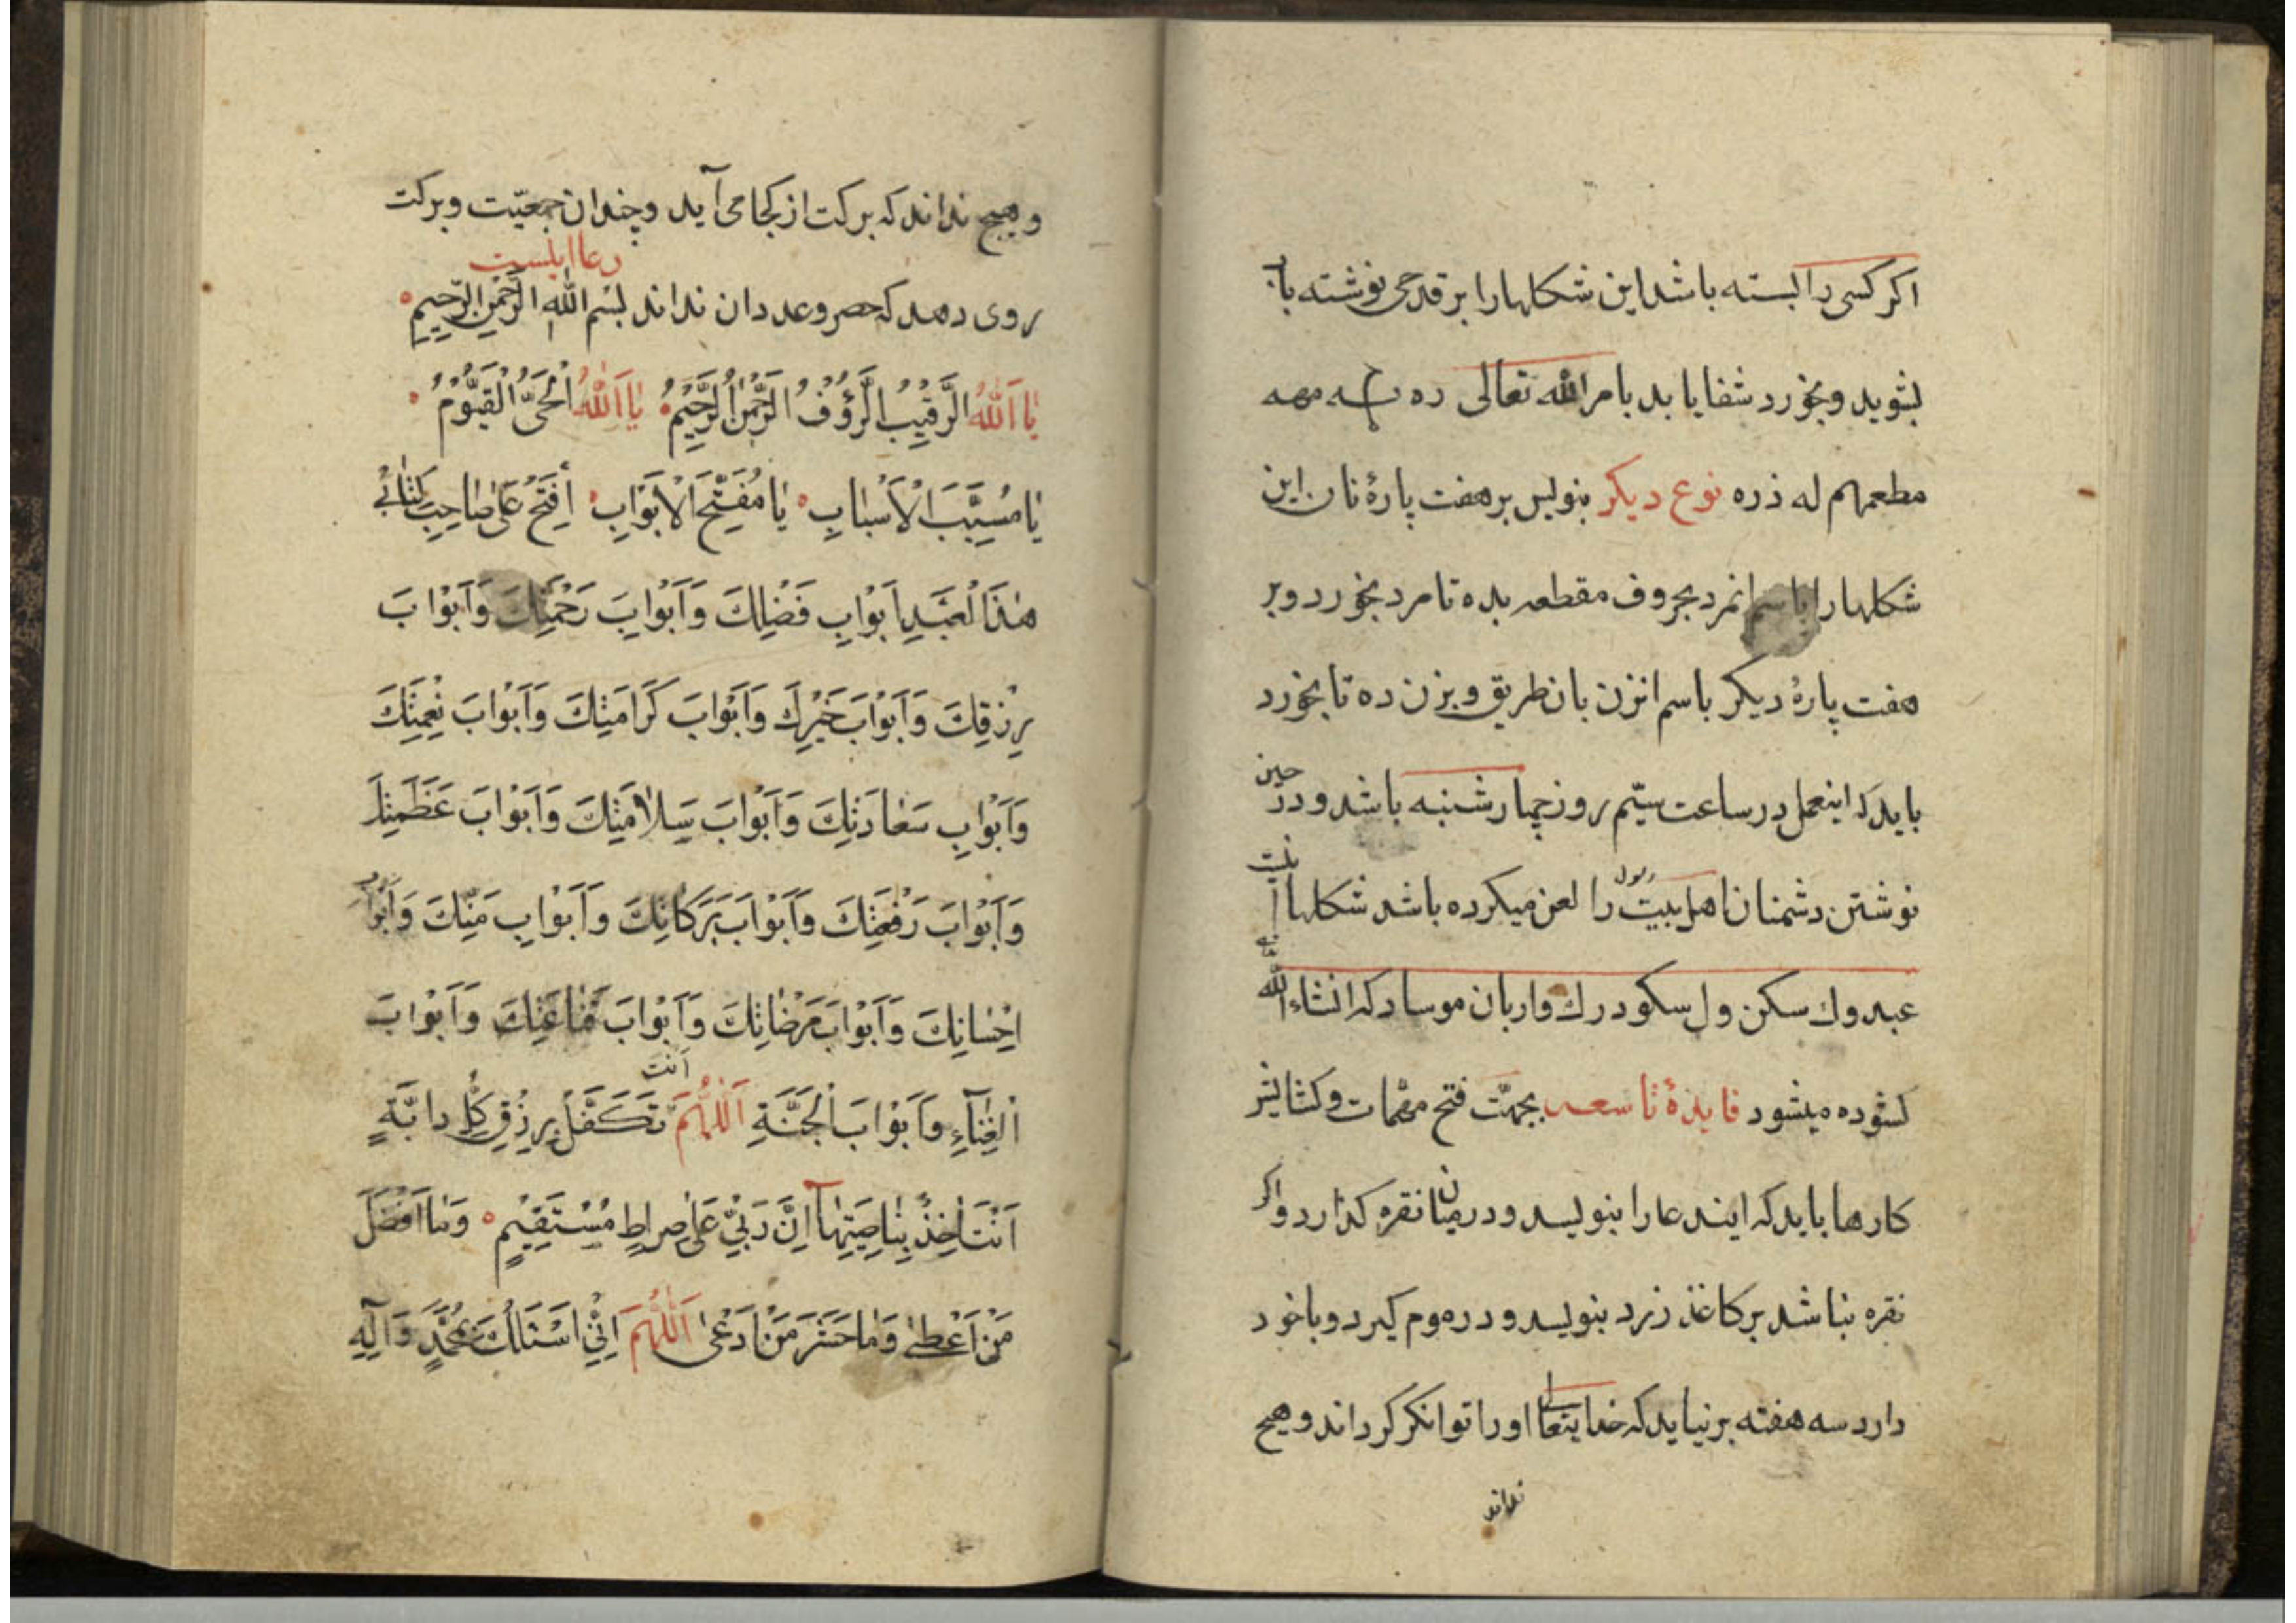 اکر کسی را بسته باشد این شکلها را بر قدحی نوشته با
بشوید و بخورد شفا یابد بامر الله تعالی ده
مطعمهم له ذره نوع دیکر بنویس بر هفت پارهٔ نان این
شکلها را باسم انمرد بحروف مقطعه بده تا مرد بخورد و بر
هفت پارهٔ دیکر باسم انزن بان طریق و بزن ده تا بخورد
باید که اینعمل در ساعت سیّم روز چهارشنبه باشد و در حین
نوشتن دشمنان اهل بیت رسول را لعن میکرده باشد شکلها
عبد وك سکن ول سکو درك وار بان موسا دکه انشاء الله
کشوده میشود فایدهٔ تاسعه بجهّت فتح مهّمات و کشایش
کارها باید که ایندعا را بنویسد و در میان نقره کذارد و اکر
نقره نباشد بر کاغذ زرد بنویسد و در موم کیرد و با خود
دارد سه هفته بر نیاید که خدایتعالی او را توانکر کرداند و هیچ
نداند
و هیچ نداند که برکت از کجا می آید و چندان جمعیّت و برکت
دعا اینست
روی دهد که حصر و عدد ان نداند بِسْمِ اللهِ الرَّحْمنِ الرَّحِیمِ
یٰا اَللّٰهُ الرَّقِیْبُ الرَّؤُفُ الرَّحْمٰنُ الرَّحِیْمُ یٰا اَللّٰهُ الْحَیُّ الْقَیُّوْمُ
یٰا مُسَبِّبَ الْاَسْبٰابِ یٰا مُفَتِّحَ الْاَبْوٰابِ اِفْتَحْ عَلٰی صٰاحِبِ کِتٰابِی
هٰذَا لْعَبْدِ اَبْوٰابِ فَضْلِكَ وَ اَبْوٰابَ رَحْمَتِكَ وَ اَبْوٰابَ
رِزْقِكَ وَ اَبْوٰابَ خَیْرِكَ وَ اَبْوٰابَ کَرَامَتِكَ وَ اَبْوٰابَ نِعْمَتِكَ
وَ اَبْوٰابِ سَعٰادَتِكَ وَ اَبْوٰابَ سَلاٰمَتِكَ وَ اَبْوٰابَ عَظَمَتِكَ
وَ اَبْوٰابَ رَفْعَتِكَ وَ اَبْوٰابَ بَرَکٰاتِكَ وَ اَبْوٰابِ مَنِّكَ وَ اَبْوٰابِ
اِحْسٰانِكَ وَ اَبْوٰابَ مَرْضٰاتِكَ وَ اَبْوٰابَ قَنٰاعَتِكَ وَ اَبْوٰابَ
الْغِنٰآءِ وَ اَبْوٰابَ الْجَنَّةِ اَللّٰهُمَّ اَنْتَ تَکَفَّلُ بِرِزْقِ کُلِّ دابَّةٍ
اَنْتَ اٰخِذٌ بِنٰاصِیَتِهٰآ اِنَّ رَبّیْ عَلٰی صِراطٍ مُسْتَقِیْمٍ وَ مٰا اَفْضَلَ
مَنْ اَعْطیٰ وَ مٰا خَسَرَ مَنْ اَدْعیٰ اَللّٰهُمَّ اِنّیْ اَسْئَلُكَ بِمُحَمَّدٍ وَ آلِهِ